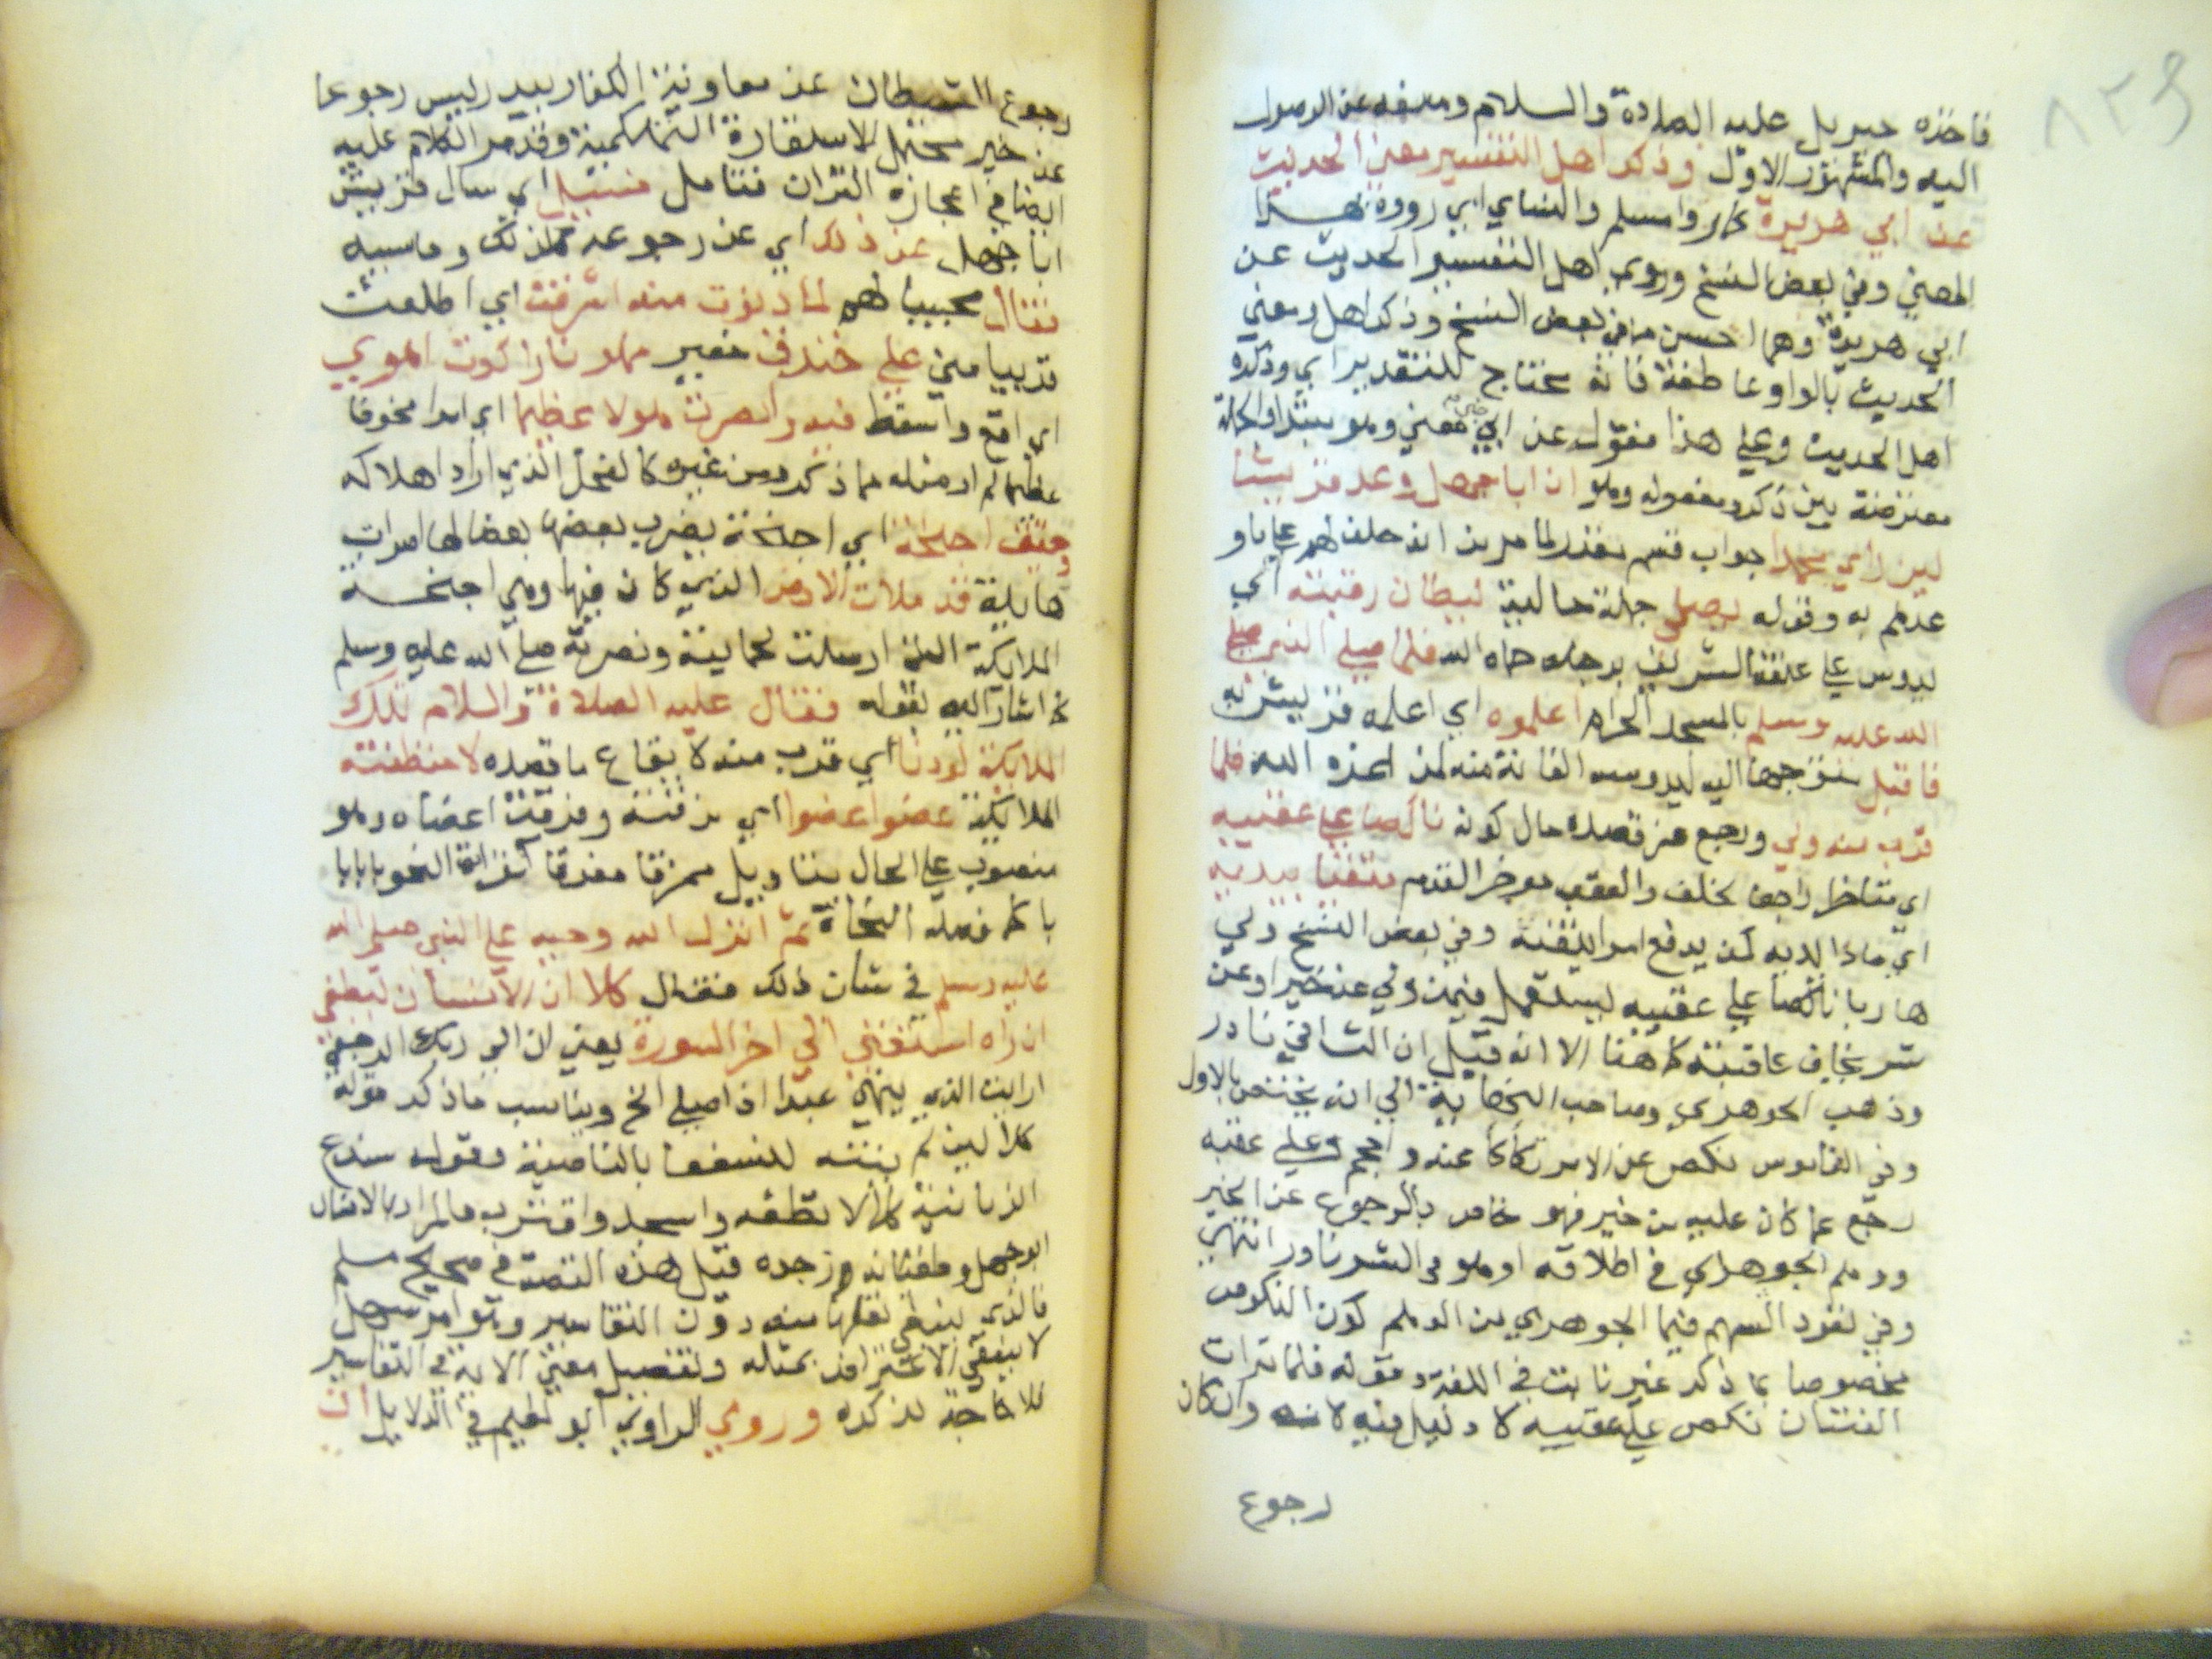 ٨٢٩
فاخذه جبريل عليه الصلاة والسلام ومنعه عن الوصول
اليه والمشهور الاول وذكر اهل التفسير معنى الحديث
عن ابي هريرة كما رواه مسلم والنساي اي رووه بهذا
المعني وفي بعض النسخ وروي اهل التفسير الحديث عن
ابي هريرة وهما احسن مما في بعض النسخ وذكر اهل معني
الحديث بالواو عاطفة فانه يحتاج للتقدير اي وذكره
اهل الحديث وعلي هذا فقوله عن ابي خبر معني وهو مبتدا والجملة
معترضة بين ذكر ومفعوله وهو ان ابا جهل وعد قريشا
لين راي محمدا جواب قسم مقدر لما مر من انه حلف لهم علي او
عدهم به وقوله يصلي جملة حالية ليطان رقبته اي
ليدوس علي عنقه الشريف برجله حماه الله فلما صلي النبي صلي
الله عليه وسلم بالمسجد الحرام اعلموه اي اعلمه قريش به
فاقبل متوجها اليه ليدوسه لعنة الله فلما
قرب منه ولي ورجع عن قصده حال كونه ناكصا علي عقبيه
اي متاخرا راجعا لخلف والعقب موخر القدم متقيا بيديه
اي مادا يديه كمن يدفع امرا يتقيه وفي بعض النسخ ولي
هاربا ناكصا علي عقبيه ليستعمل فيمن ولي عن خير او عن
شر يخاف عاقبته كما هنا الا انه قيل ان الثاني نادر
وذهب الجوهري وصاحب النهاية الي انه يختص بالاول
وفي القاموس نكص عن الامر تكاكا عنه واحجم وعلي عقبه
رجع عما كان عليه من خير فهو خاص بالرجوع عن الخير
ووهم الجوهري في اطلاقه او هو في الشر نادر انتهي
وفي نفوذ السهم فيما للجوهري من الوهم كون النكوص
مخصوصا بما ذكر غير ثابت في اللغة وقوله فلما ترات
الفئتان نكص علي عقبيه لا دليل فيه لانه وان كان
رجوع
رجوع الشيطان عن معاونة الكفار ببدر ليس رجوعا
عن خير محتمل للاستعارة التهكمية وقد مر الكلام عليه
ايضا في اعجازه القران فتامل فسيل اي سال قريش
ابا جهل عن ذلك اي عن رجوعه كذلك وما سببه
فقال مجيبا لهم لما دنوت منه اشرفت اي اطلعت
قريبا مني علي خندق حفير مملو نارا كدت اهوي
اي اقع واسقط فيه وابصرت هولا عظيما اي امرا مخوفا
عظيما لم ار مثله مما ذكر ومن غيره كالفحل الذي اراد اهلاكه
وخفق اجنحة اي اجنحة يضرب بعضها بعضا لها اصوات
هايلة قد ملات الارض الذي كان فيها وهي اجنحة
الملايكة ارسلت لحمايته ونصرته صلي الله عليه وسلم
كما اشار اليه بقوله فقال عليه الصلاة والسلام تلك
الملايكة لو دنا اي قرب منه لايقاع ما قصده لاختطفته
الملايكة عضوا عضوا اي مزقته وفرقت اعضاه وهو
منصوب علي الحال بتاويل ممزقا مفرقا كقراة النحو بابا بابا
كما فصله النحاة ثم انزل الله وحيه علي النبي صلي الله
عليه وسلم في شان ذلك فقال كلا ان الانسان ليطغي
ان راه استغني الي اخر السورة يعني ان الي ربك الرجعي
ارايت الذي ينهي عبدا اذا صلي الخ ويناسب ما ذكر قوله
كلا لين لم ينته لنسفعا بالناصية وقوله سندع
الزبانية كلا لا تطعه واسجد واقترب فالمراد بالانسان
ابو جهل وطغيانه وزجره قيل هذه القصة في صحيح مسلم
فالذي ينبغي نقلها منه دون التفاسير وهو امر سهل
لا ينبغي الاعتراض بمثله وتفصيل معني الاية في التفاسير
فلا حاجة لذكره وروي الراوي ابو نعيم في الدلايل ان